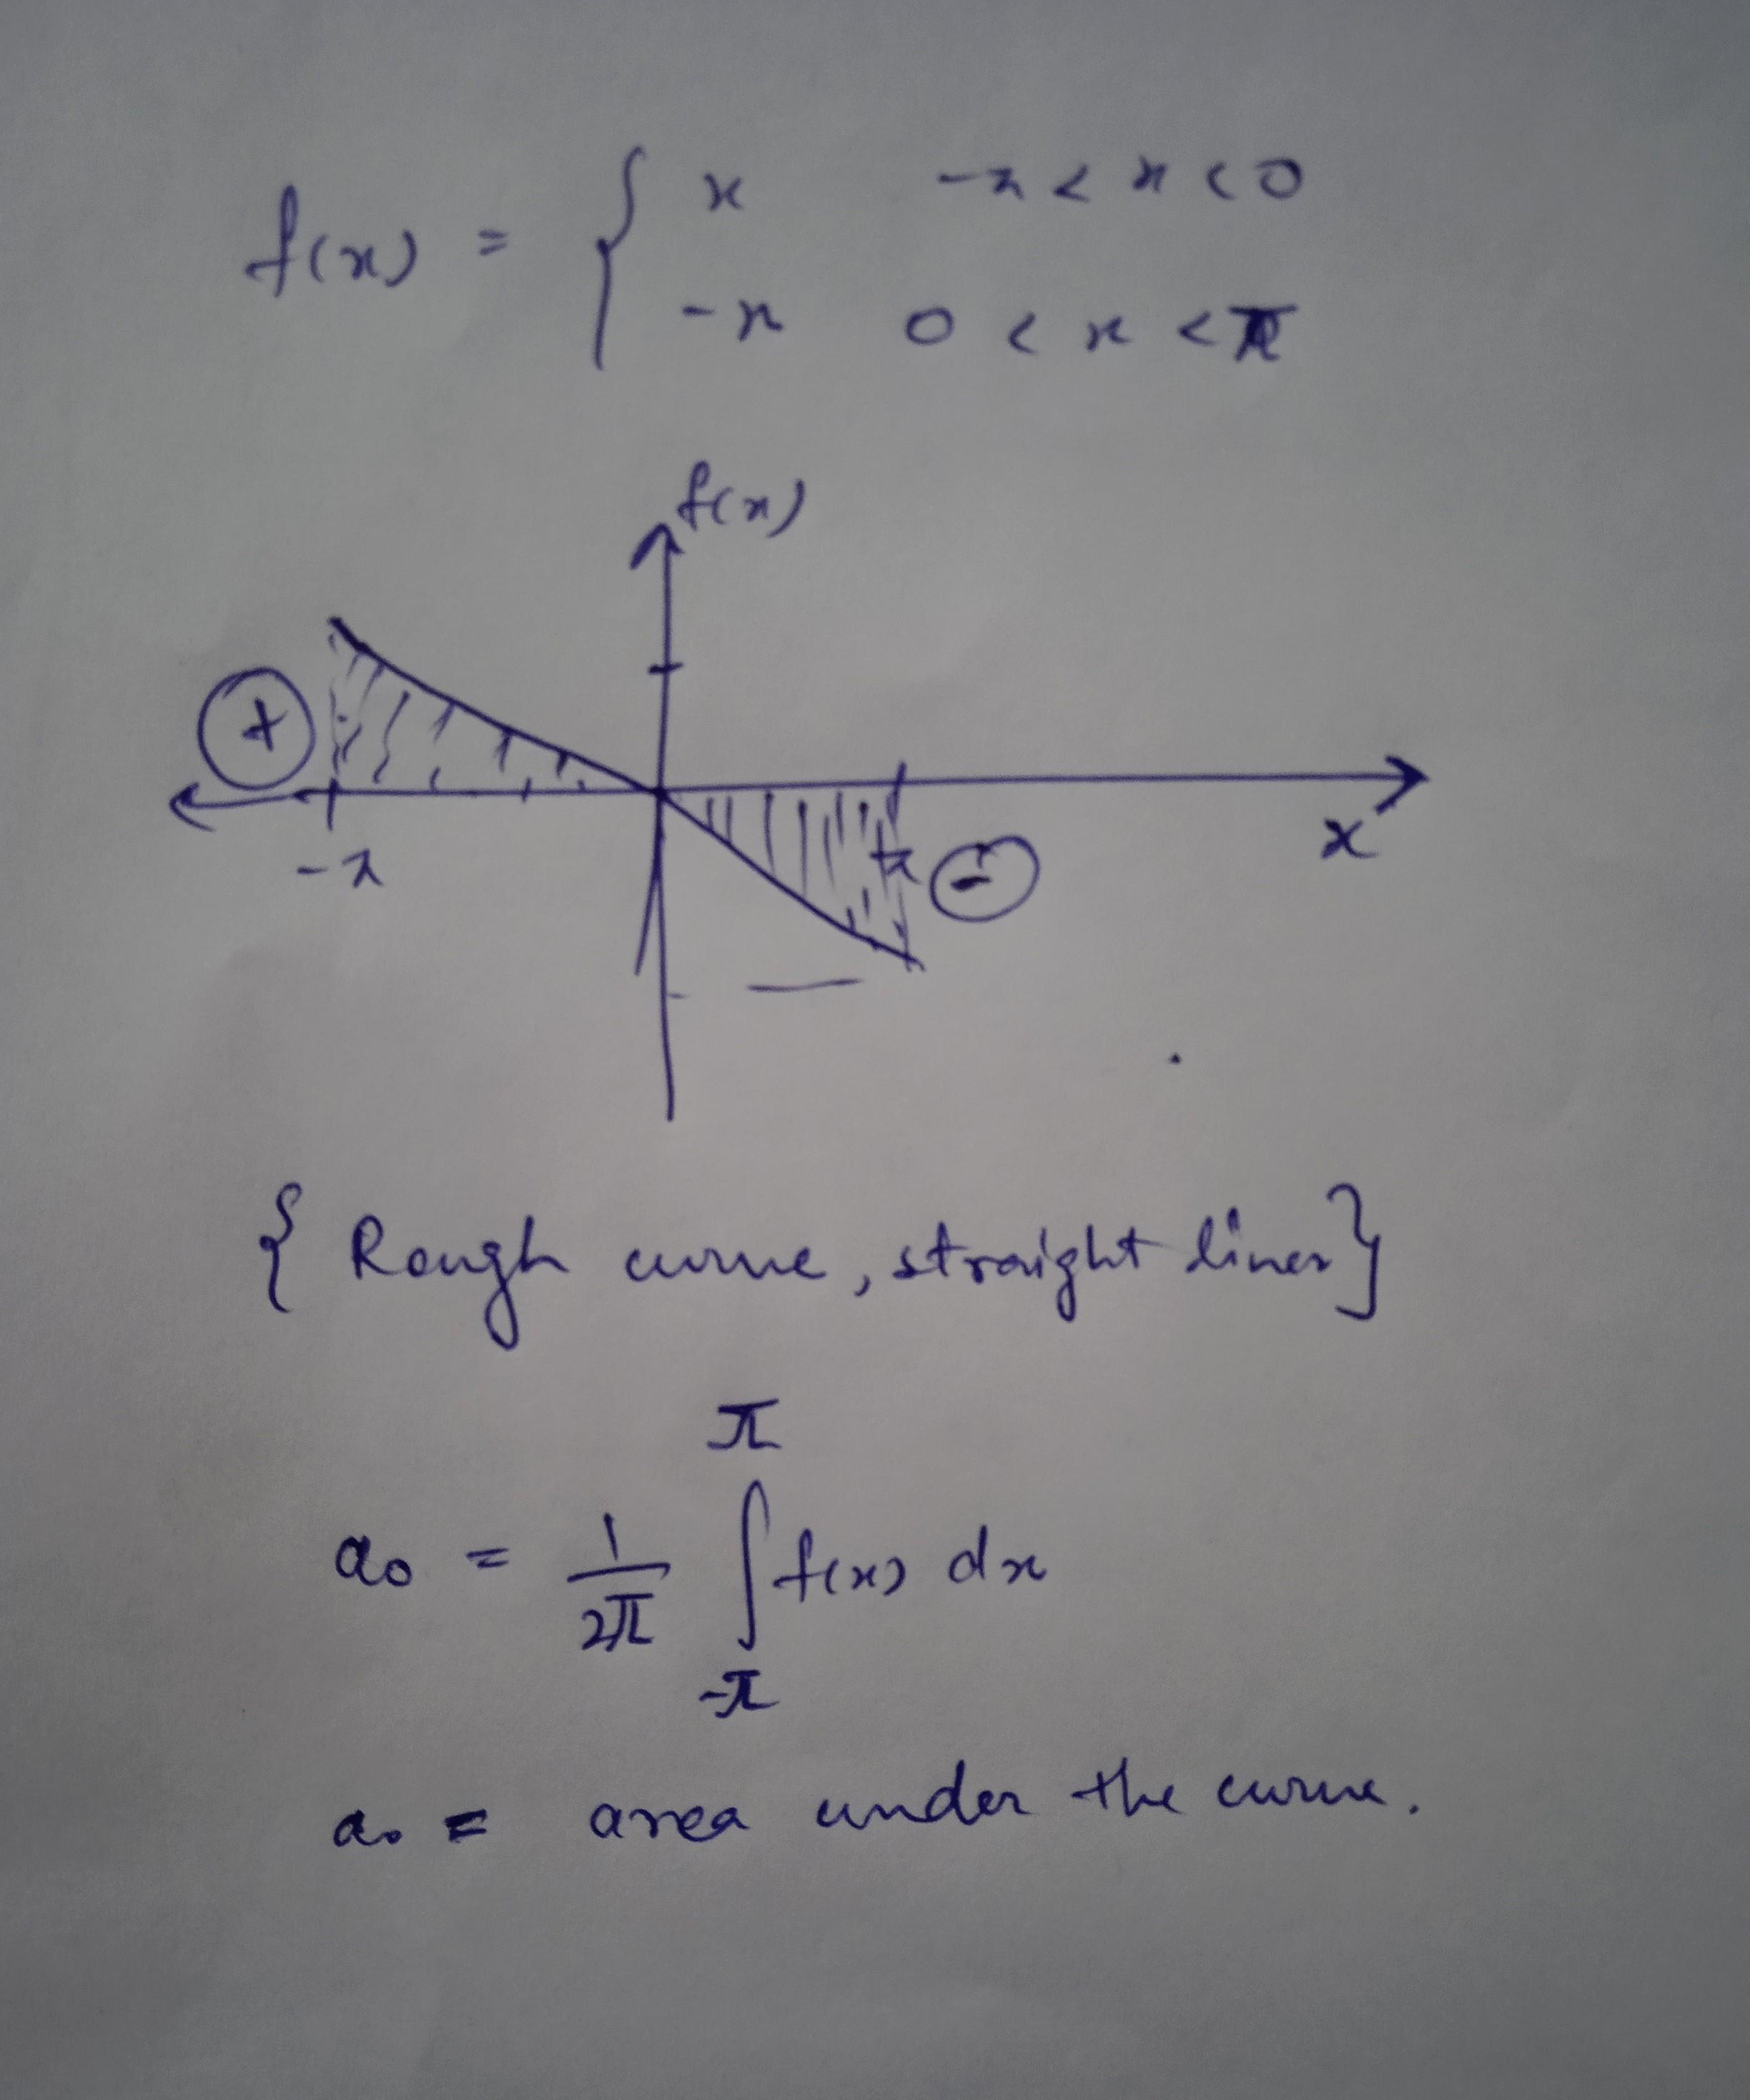 f(x) = { x -π < x < 0
-x 0 < x < π
f(x)
+
-π
π
-
x
{ Rough curve, straight lines}
a₀ = 1/2π ∫_{-π}^{π} f(x) dx
a₀ = area under the curve.